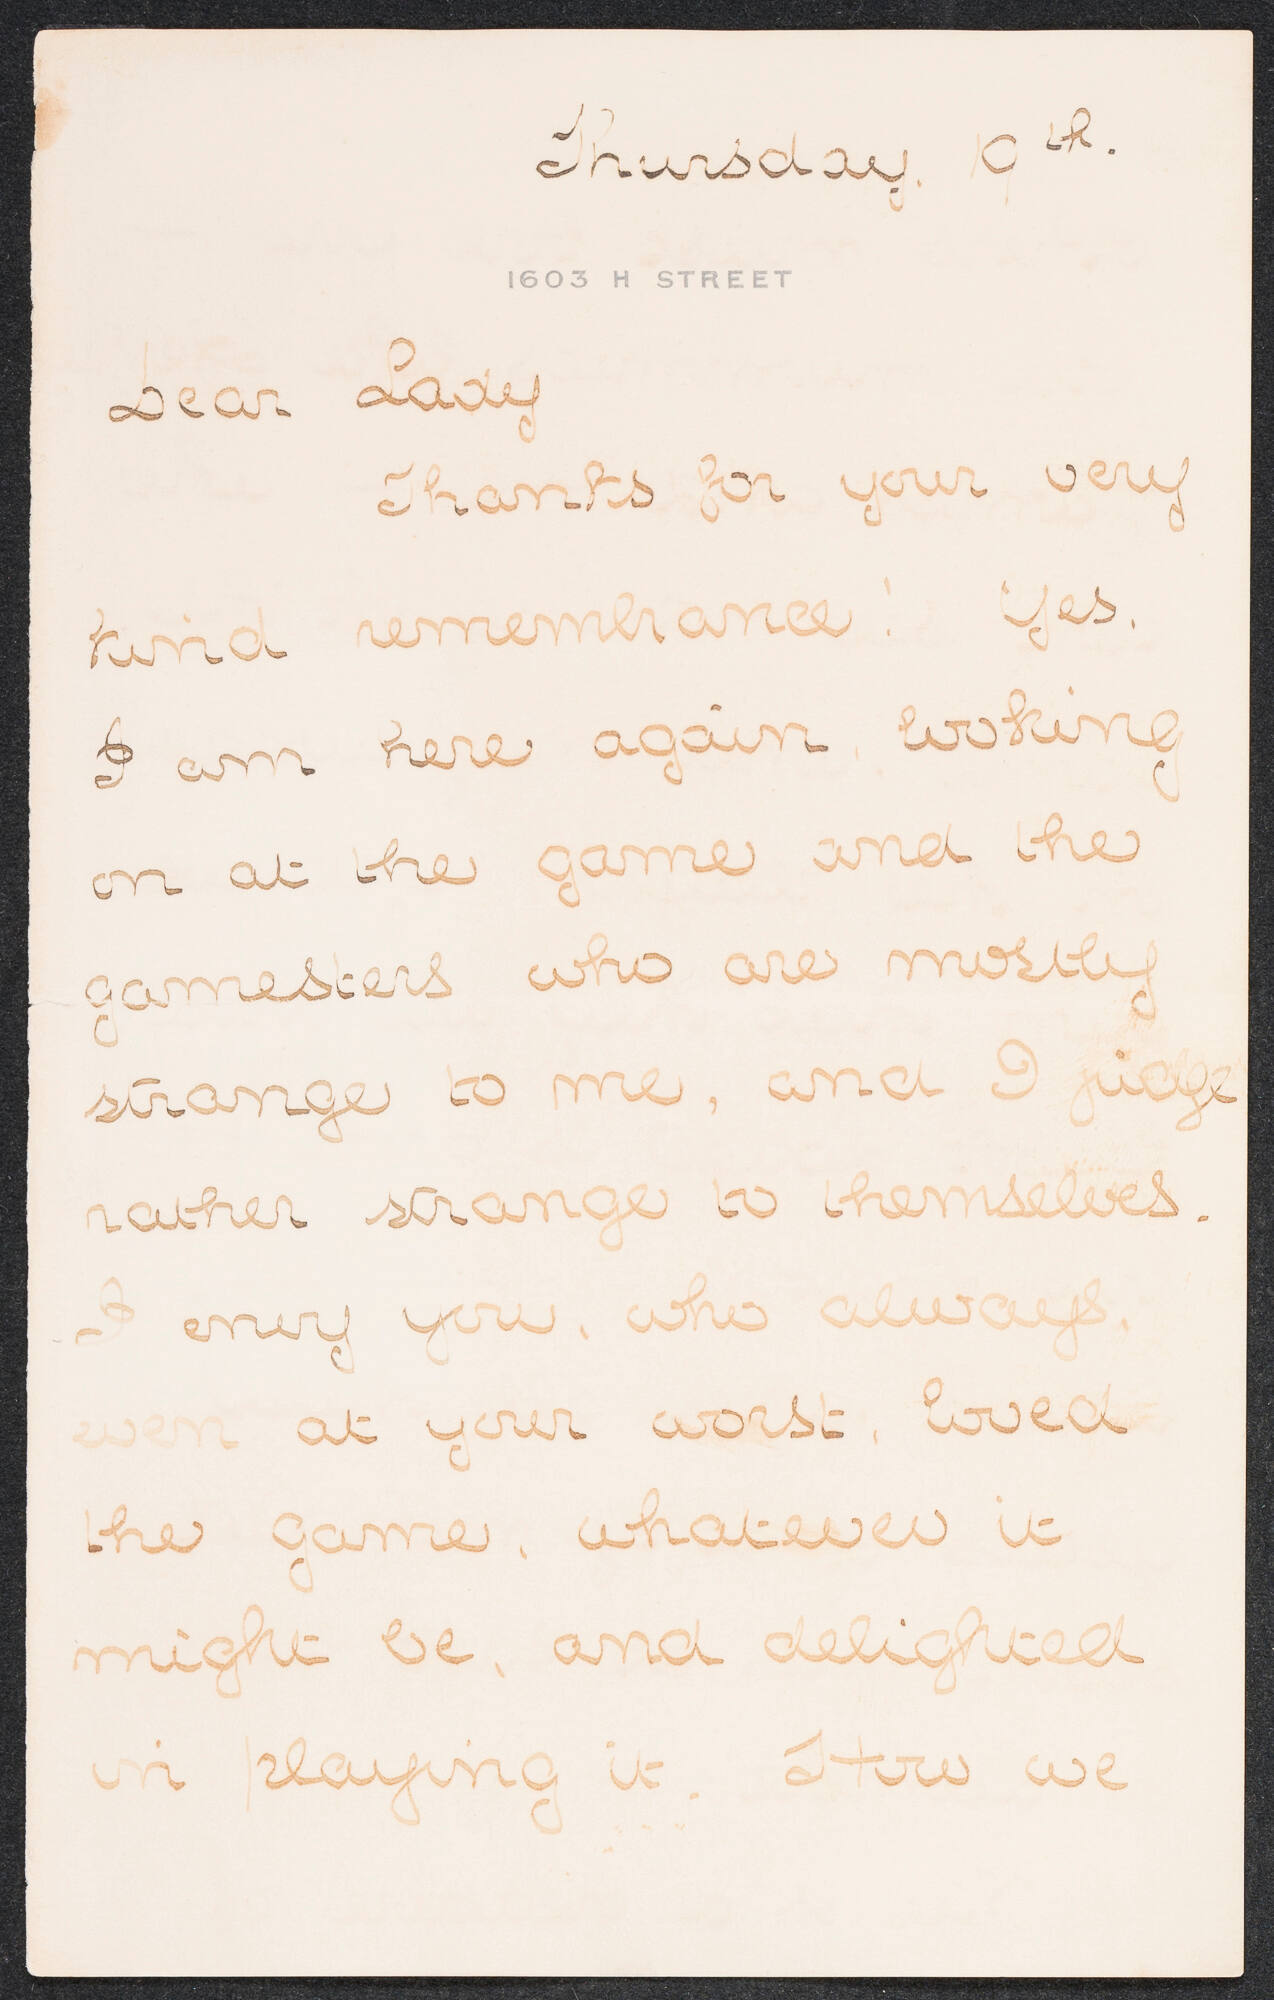 Thursday. 19th.
1603 H STREET
Dear Lady
Thanks for your very
kind remembrance! Yes,
I am here again, looking
on at the game and the
gamesters who are mostly
strange to me, and I judge
rather strange to themselves.
I envy you, who always,
even at your worst, loved
the game, whatever it
might be, and delighted
in playing it. How we